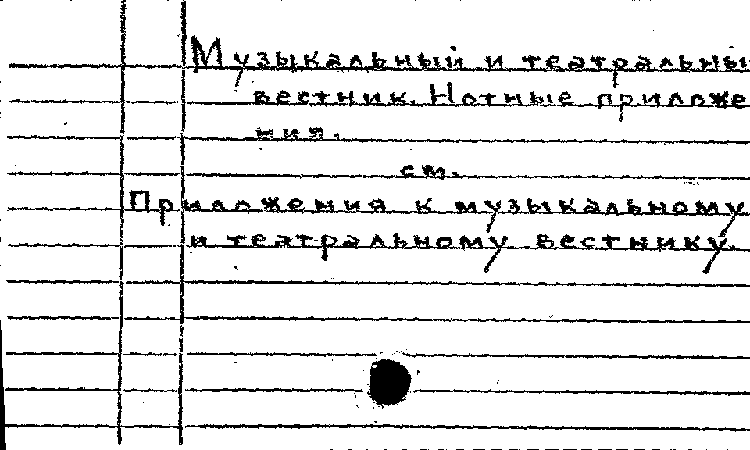 Музыкальный и театральны
вестник. Нотные приложе
ния.
см.
Приложения к музыкальному
и театральному вестнику.